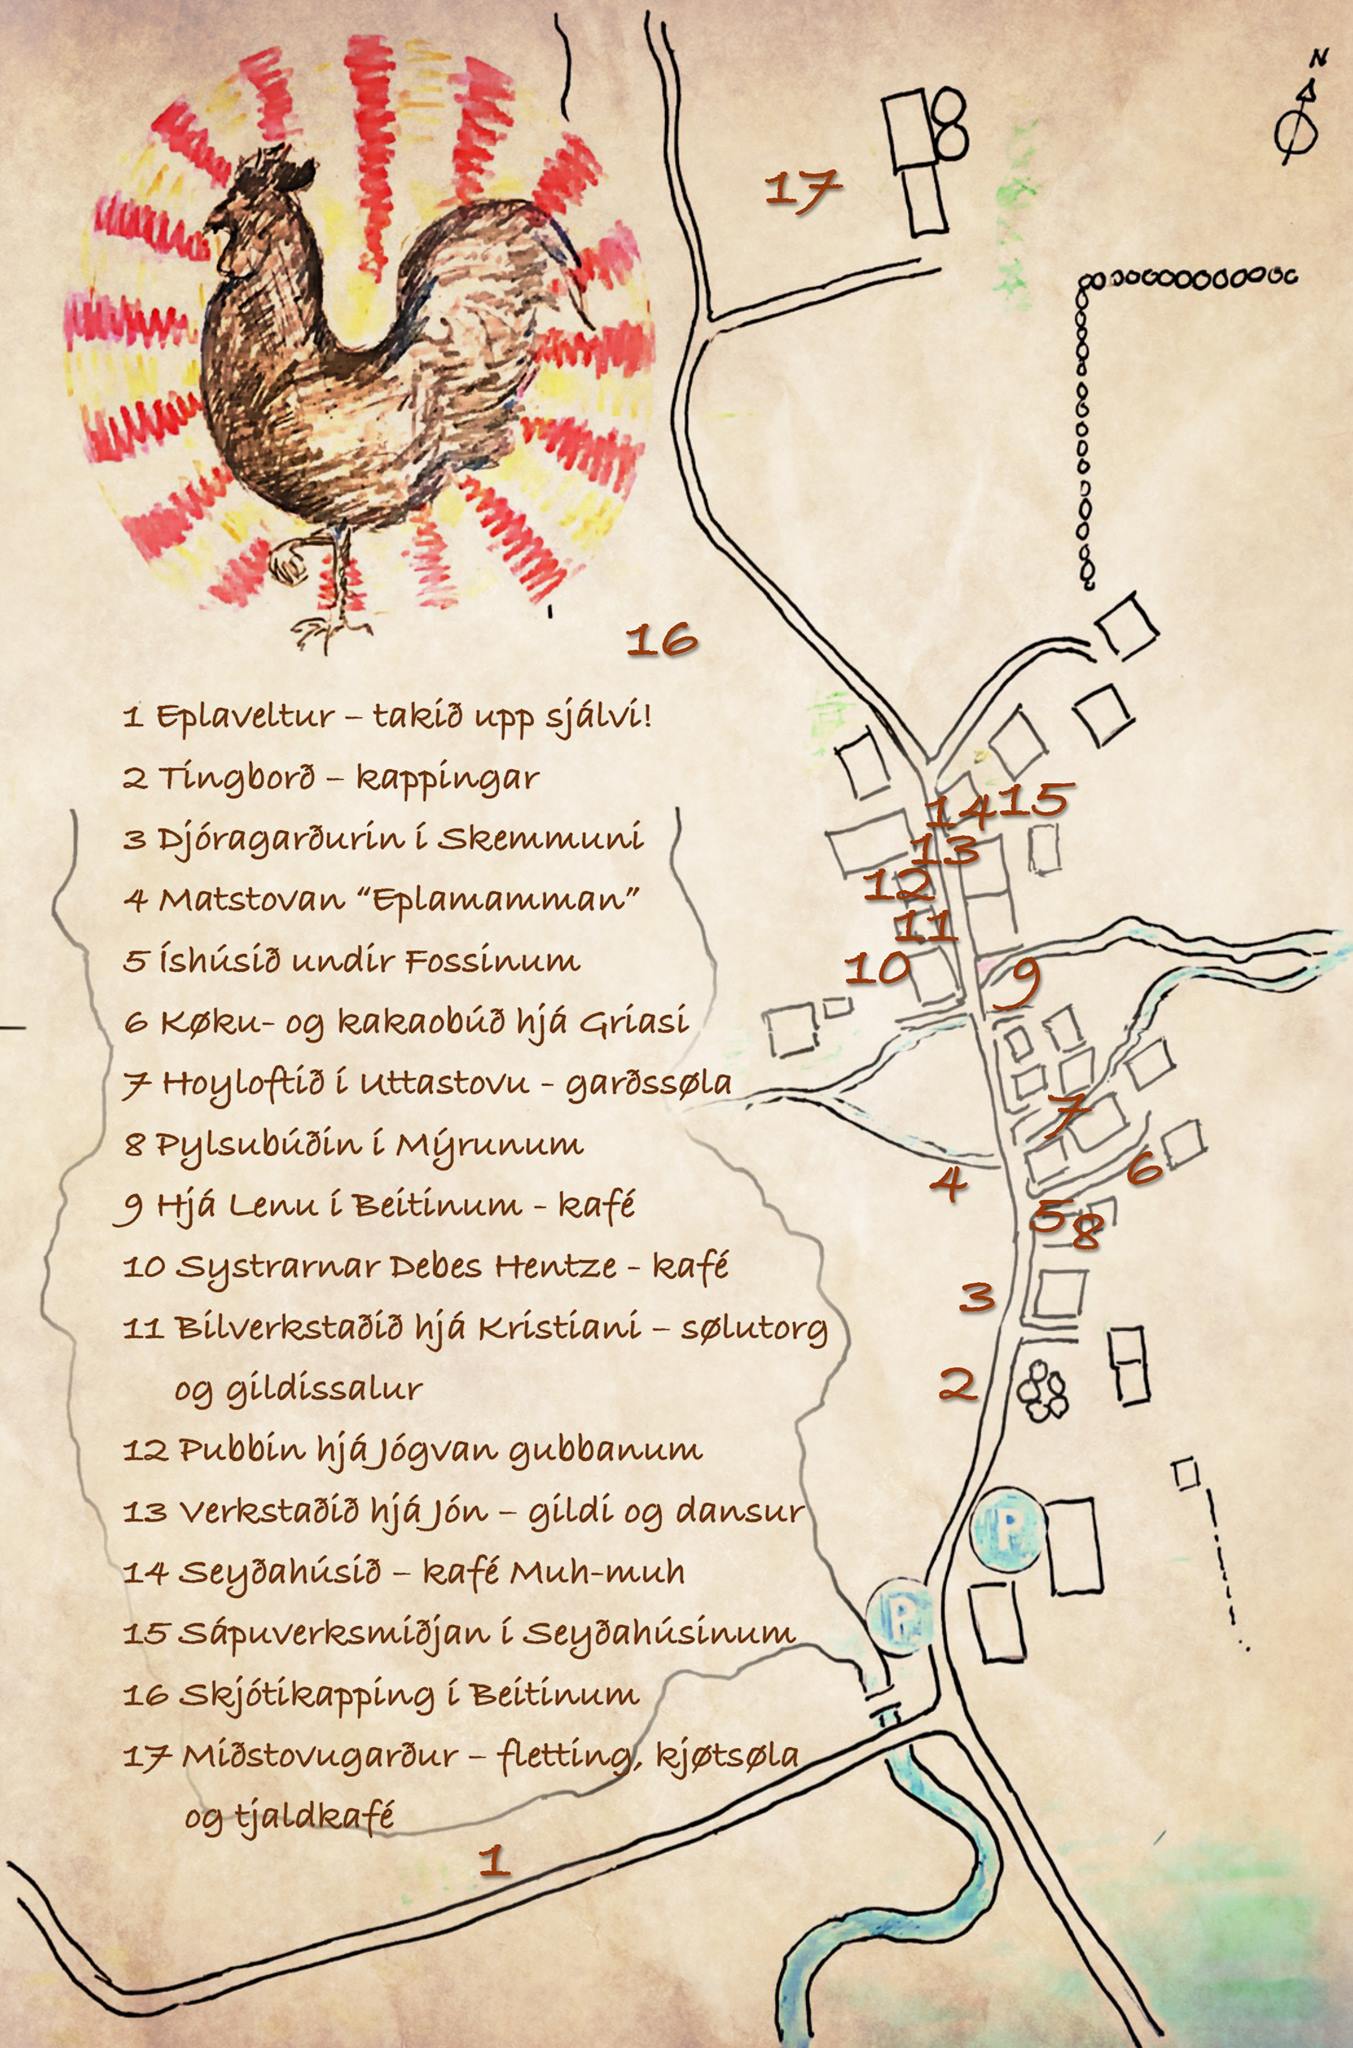 N
17
16
1 Eplaveltur – takið upp sjálvi!
2 Tingborð – kappingar
3 Djóragarðurin í Skemmuni
4 Matstovan “Eplamamman”
5 Íshúsið undir Fossinum
6 Køku- og kakaobúð hjá Griasi
7 Hoyloftið í Uttastovu - garðssøla
8 Pylsubúðin í Mýrunum
9 Hjá Lenu í Beitinum - kafé
10 Systrarnar Debes Hentze - kafé
11 Bilverkstaðið hjá Kristiani – sølutorg
og gildissalur
12 Pubbin hjá Jógvan gubbanum
13 Verkstaðið hjá Jón – gildi og dansur
14 Seyðahúsið – kafé Muh-muh
15 Sápuverksmiðjan í Seyðahúsinum
16 Skjótikapping í Beitinum
17 Miðstovugarður – fletting, kjøtsøla
og tjaldkafé
14 15
13
12
11
10
9
7
6
4
5
8
3
2
P
P
1